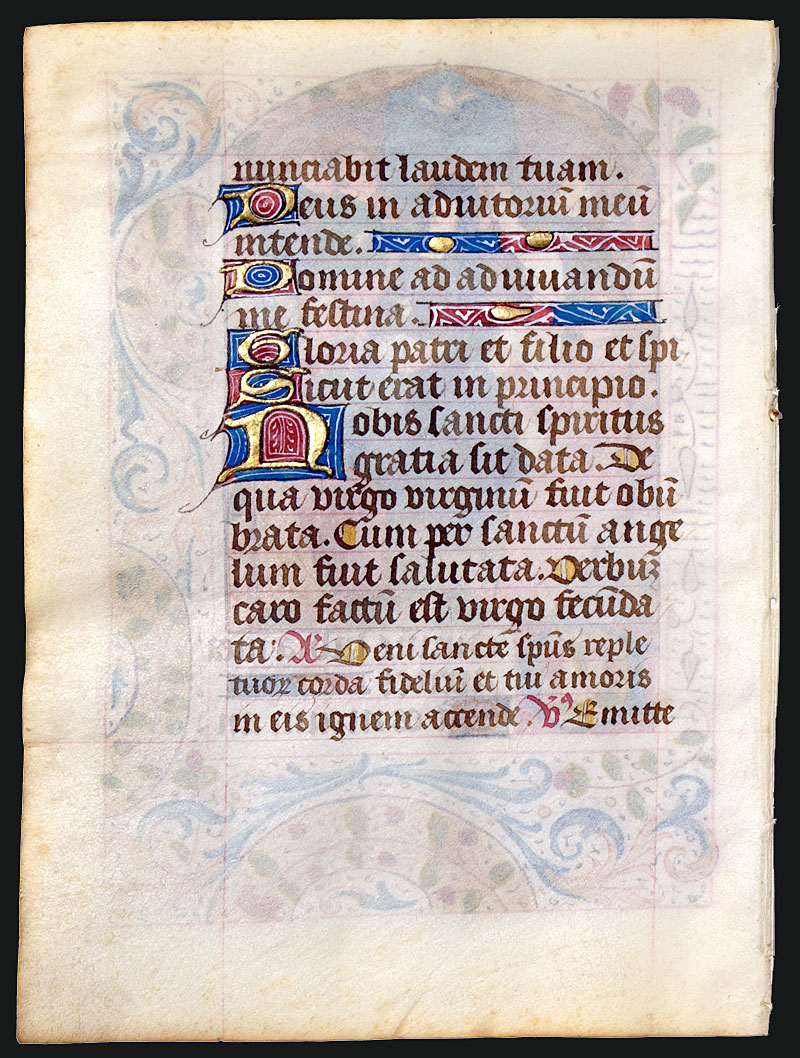 nunciabit laudem tuam.
Deus in adiutoriū meū
intende.
Domine ad adiuuandū
me festina.
Gloria patri et filio et spi.
Sicut erat in principio.
Nobis sancti spiritus
gratia sit data. De
qua virgo virginū fuit obū
brata. Cum per sanctū ange
lum fuit salutata. Verbuꝫ
caro factū est virgo fecūda
ta. A Veni sancte sp̄us reple
tuoꝝ corda fideliū et tui amoris
in eis ignem accende. V Emitte